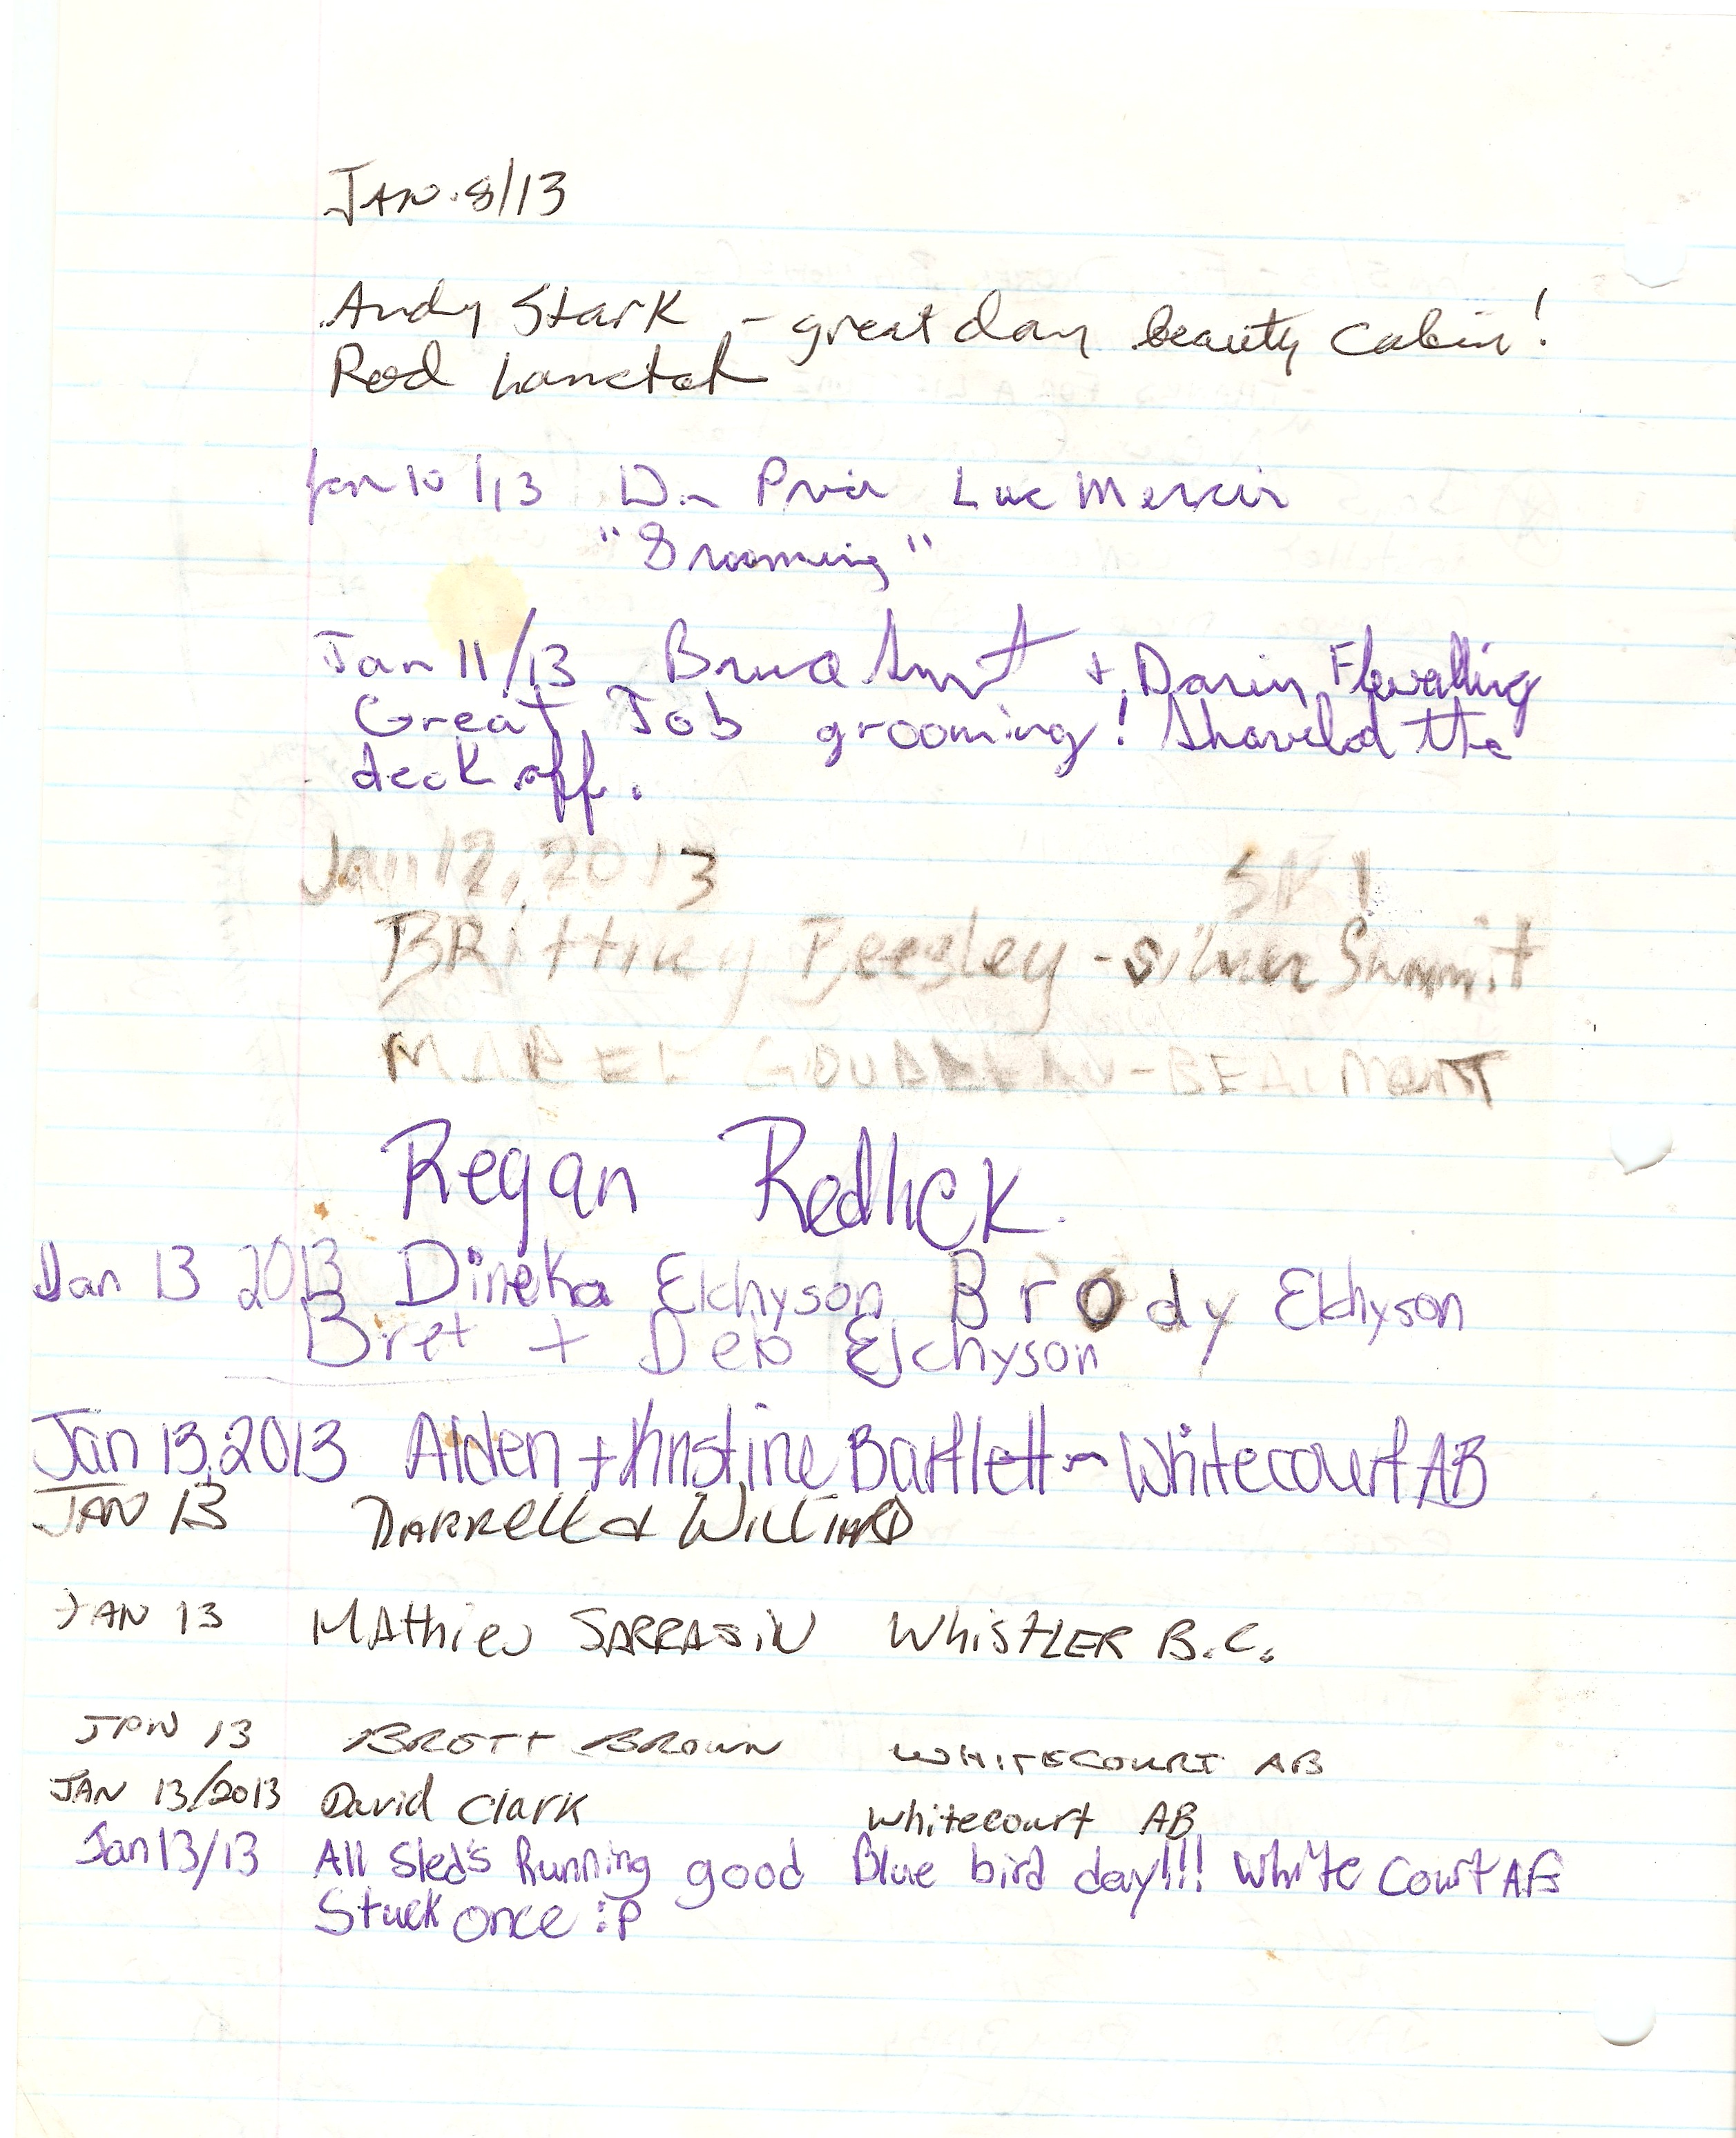 JAN. 8/13
Andy Stark - great day beauty cabin!
Rod Lanctot
Jan 10/13 Luc Mercier
"Grooming"
Jan 11/13 Bruce + Darin Flewelling
Great Job grooming! Shoveled the
deck off.
Jan 12, 2013 SK!
BRittney Beesley - silver Summit
MAREL GOUDREAU - BEAUMONT
Regan Redlick
Jan 13 2013 Dineka Elchyson Brody Elchyson
Bret + Deb Elchyson
Jan 13, 2013 Alden + Kristine Bartlett - Whitecourt AB
JAN 13 DARRELL
JAN 13 MAthieu SARRASiN WhiSTLER B.C.
JAN 13 BRETT BROWN WHITECOURT AB
JAN 13/2013 David Clark Whitecourt AB
Jan 13/13 All Sled's Running good Blue bird day!!! White Court AB
Stuck once :P